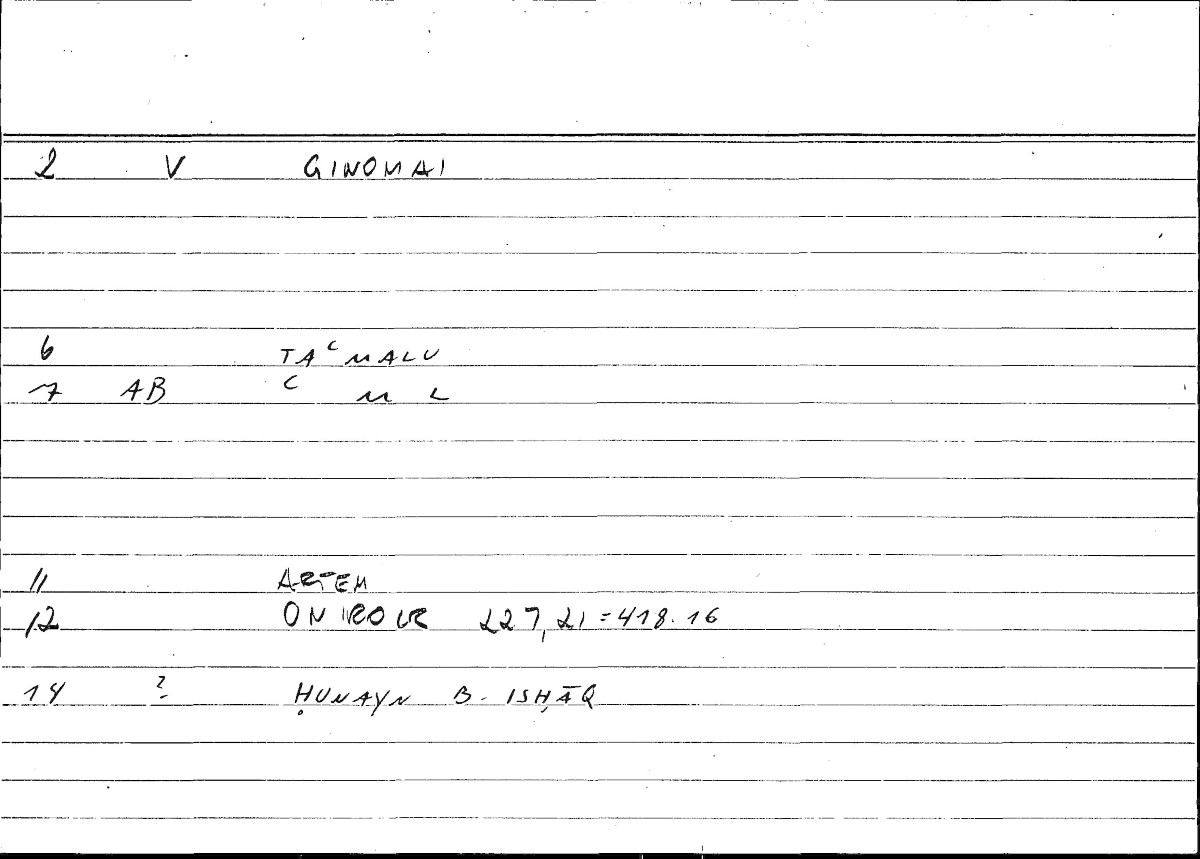 2 V GINOMAI
6 TAʿMALU
7 AB ʿ M L
11 ARTEM
12 ONIROCR 227,21=418.16
14 ? ḤUNAYN B. ISḤĀQ